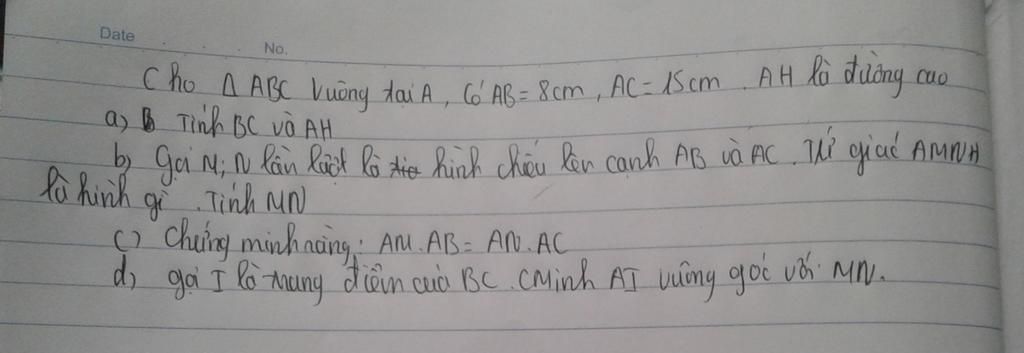 Date
No.
Cho Δ ABC vuông tại A, có AB = 8cm, AC = 15cm. AH là đường cao
a) Tính BC và AH
b) Gọi M; N lần lượt là hình chiếu lên cạnh AB và AC. Tứ giác AMNH
là hình gì. Tính MN
c) Chứng minh rằng: AM.AB = AN.AC
d) gọi I là trung điểm của BC. CMinh AI vuông góc với MN.